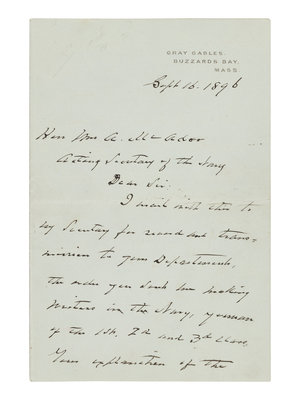 GRAY GABLES.
BUZZARDS BAY,
MASS
Sept 16. 1896
Hon Wm A. McAdoo
Acting Secretary of the Navy
Dear Sir.
I mail with this to
my Secretary for record and trans=
mission to your Department,
the order you sent me making
Writers in the Navy, yeoman
of the 1st. 2d and 3d class.
Your explanation of the